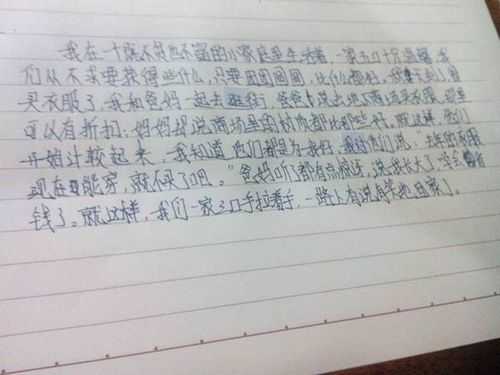 我在一个既不贫也不富的小家庭里生活着，一家三口十分温馨，我
们从不求要获得些什么，只要团团圆圆，比什么都好。我 了 买衣服了，我和爸妈一起去逛街，爸爸说出地下商场买衣服，那里
可以有折扣，妈妈却说商场里的材质都比那些好，就这样，他们
开始计较起来，我知道他们都是为我好，我 他们说，"去年的衣服
现在 能穿，就不买了吧。"爸妈听了都有点惊讶，说我长大了，学会 省
钱了。就这样，我们一家三口手拉着手，一路上有说有笑地回家了。